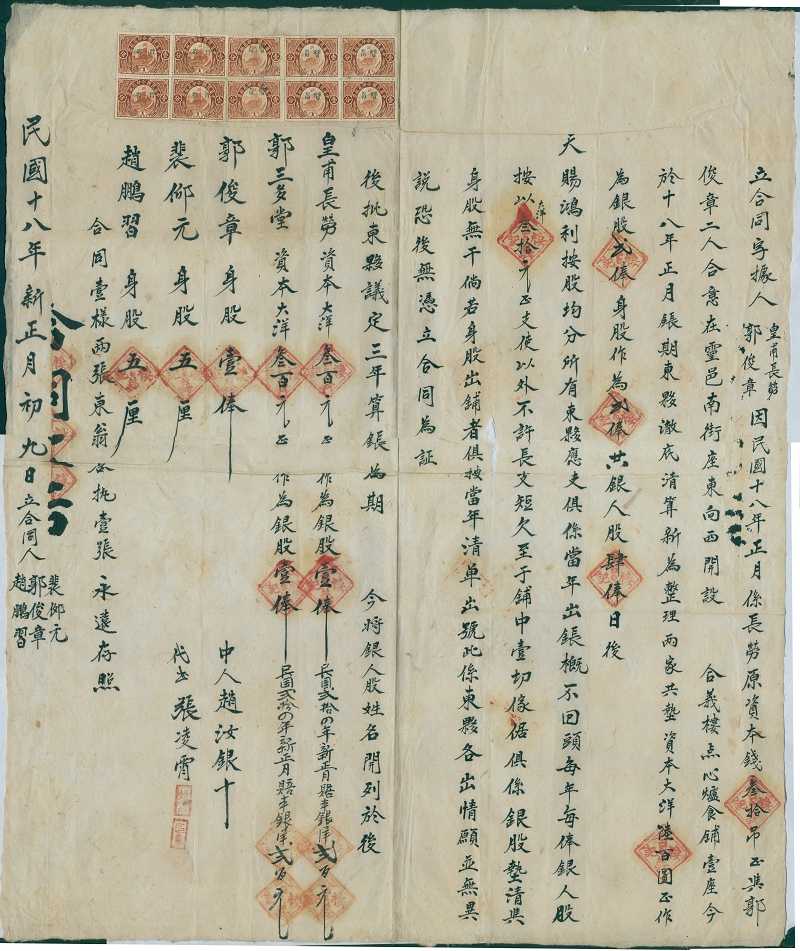 立合同字據人皇甫長勞郭俊章因民國十八年正月係長勞原資本錢叁拾吊正與郭
俊章二人合意在靈邑南街座東向西開設 合義樓点心爐食鋪壹座今
於十八年正月賬期東夥澈底清算新為整理兩家共墊資本大洋陸百圓正作
為銀股弍俸身股作為弍俸共銀人股肆俸日後
天賜鴻利按股均分所有東夥應支俱係當年出賬概不回頭每年每俸銀人股
按以大洋叁拾元正支使以外不許長支短欠至于鋪中壹切傢俱係銀股墊清與
身股無干倘若身股出鋪者俱按當年清單出號此係東夥各出情願並無異
説恐後無憑立合同為証
後批東夥議定三年算賬為期 今將銀人股姓名開列於後
皇甫長勞 資本大洋叁百元正 作為銀股壹俸 民國弍拾年新正月 銀洋弍百元
郭三多堂 資本大洋叁百元正 作為銀股壹俸 民國弍拾年新正月 銀洋弍百元
郭俊章 身股壹俸 中人趙汝銀十
裴仰元 身股五厘 代書張凌霄
趙鵬習 身股五厘
合同壹樣兩張東翁各执壹張永遠存照
民國十八年新正月初九日立合同人裴仰元郭俊章趙鵬習